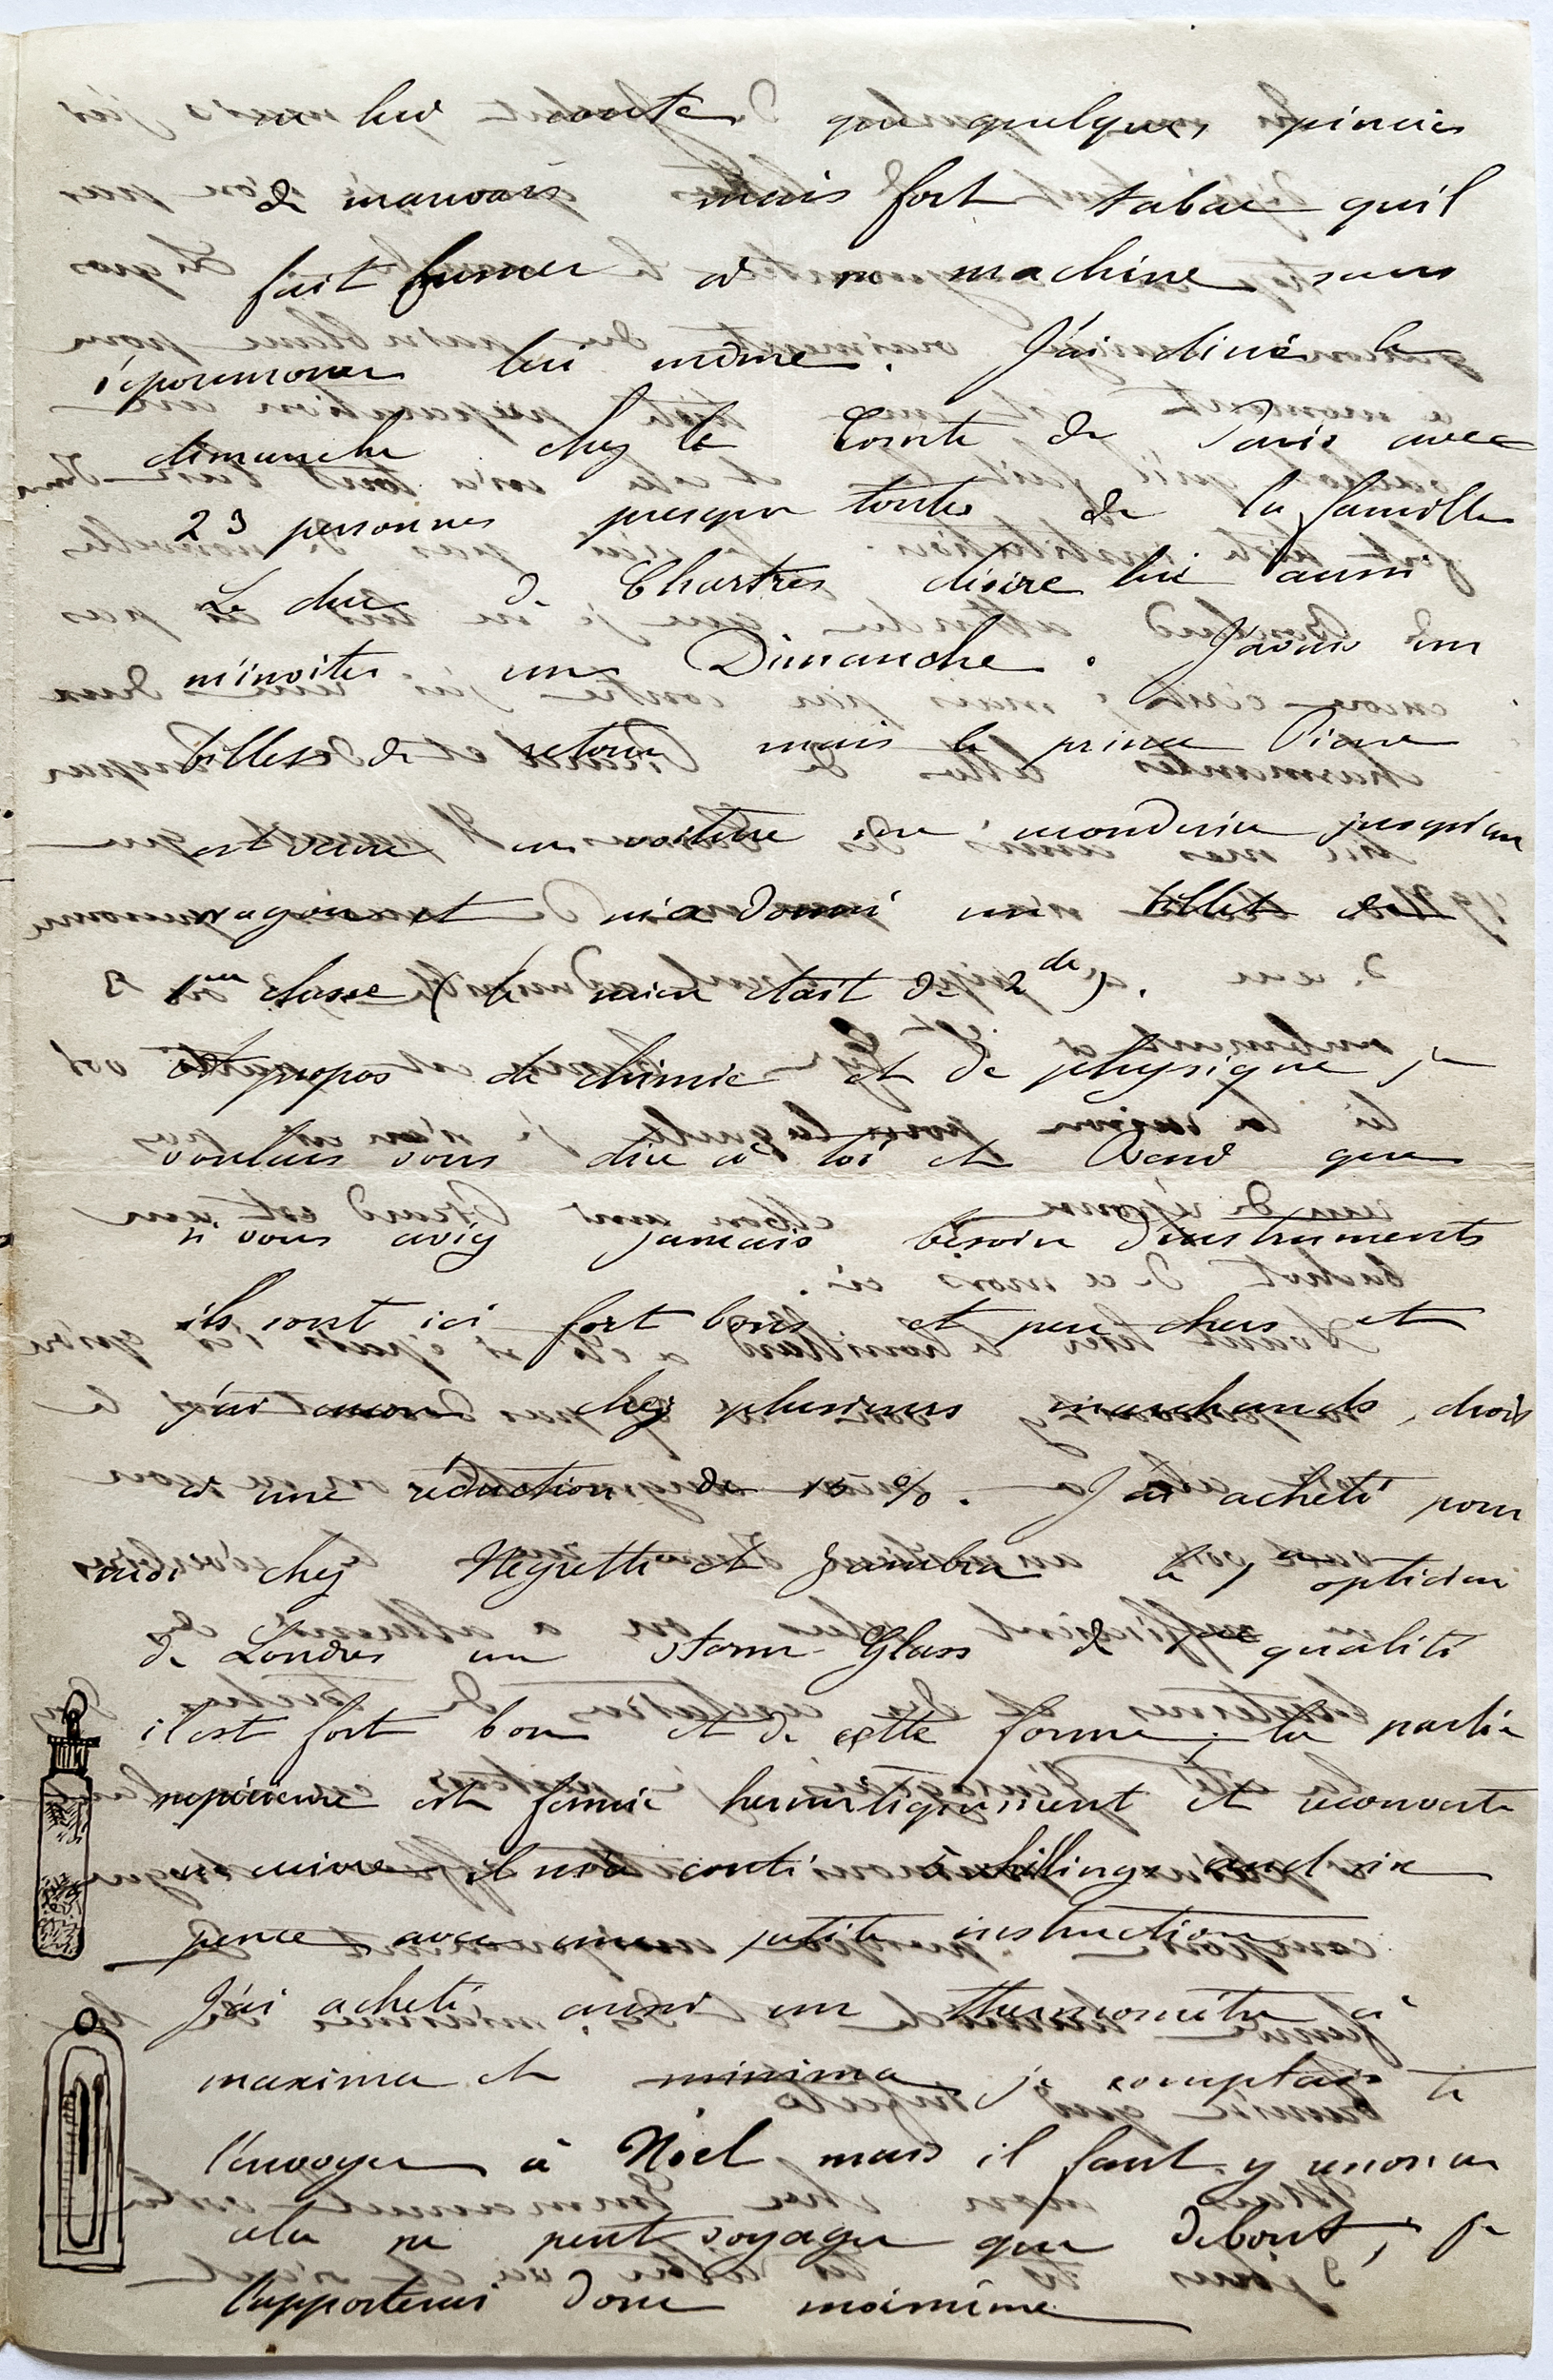 ne lui coute que quelques pincées
de mauvais mais fort tabac qu'il
fait fumer à sa machine sans
s'époumoner lui même. J'ai diné le
dimanche chez le Comte de Paris avec
23 personnes presque toutes de la famille
Le duc de Chartres désire lui aussi
m'inviter un Dimanche. J'avais un
billet de retour mais le prince Pierre
est venu en voiture me reconduire jusqu'au
wagon et m'a donné un billet de
1ere classe (le mien était de 2de).
A propos de chimie et de physique je
voulais vous dire à toi et que
si vous aviez jamais besoin d'instruments
ils sont ici fort bons et peu chers et
j'ai encore chez plusieurs marchands, droit
à une réduction de 15 %. J'ai acheté pour
moi chez Negretti et Zambra le 1er opticien
de Londres un Storm-Glass de 1ere qualité
il est fort bon et de cette forme; la partie
supérieure est fermée hermétiquement et recouverte
en cuivre il m'a couté shillings and six
pence avec une petite instruction.
J'ai acheté aussi un thermomètre à
maxima et minima je comptais te
l'envoyer à Noël mais il faut y renoncer
cela ne peut voyager que debout; je
l'apporterai donc moimême